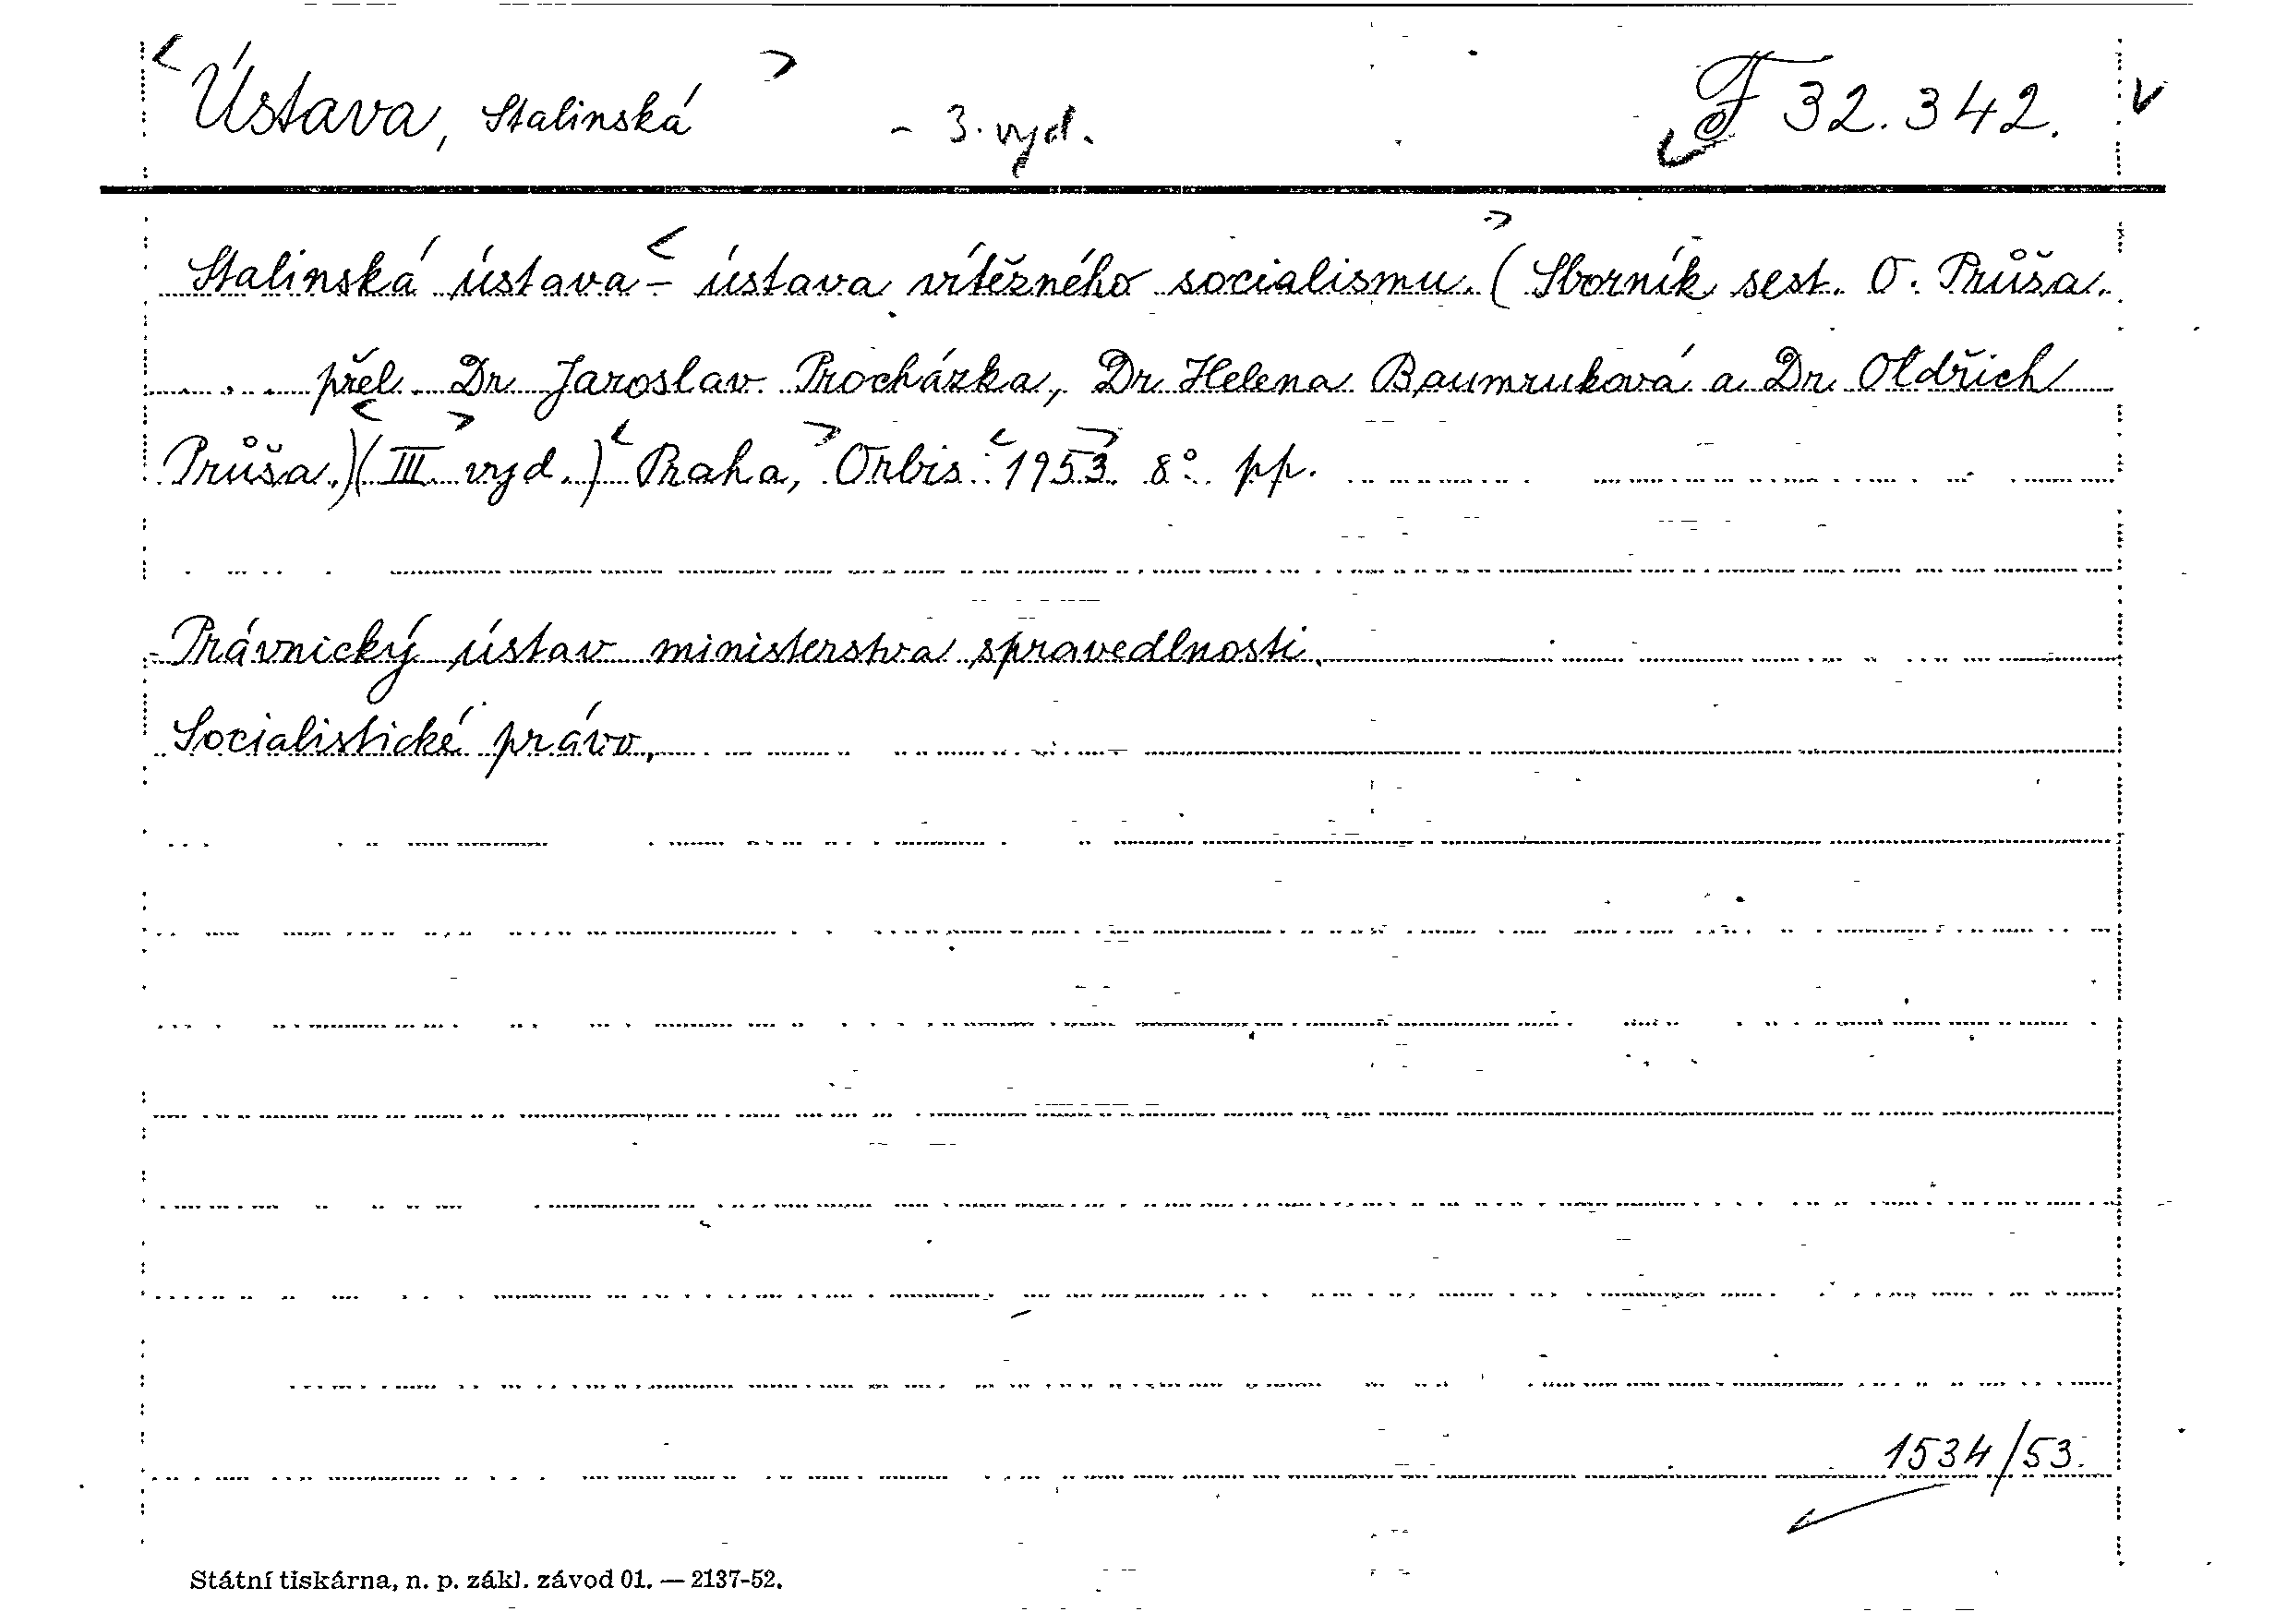 < Ústava, Stalinská > - 3. vyd. F 32.342. v
Stalinská ústava - < ústava vítězného socialismu. > ( Sborník sest. O. Průša.
.... přel. Dr. Jaroslav Procházka, Dr. Helena Baumruková a Dr. Oldřich
Průša.) ( < III. > vyd. ) < Praha, > Orbis < 1953. > 8° pp.
Právnický ústav ministerstva spravedlnosti.
Socialistické právo,
1534/53.
Státní tiskárna, n. p. zákl. závod 01. — 2137-52.